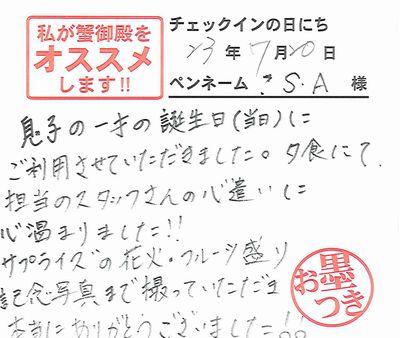 私が蟹御殿を
オススメ
します!!
チェックインの日にち
23年7月20日
ペンネーム S.A 様
息子の一才の誕生日(当日)に
ご利用させていただきました。夕食にて
担当のスタッフさんの心遣いに
心温まりました!!
サプライズの花火・フルーツ盛り
記念写真まで撮っていただきま
本当にありがとうございました!!
お墨
つき